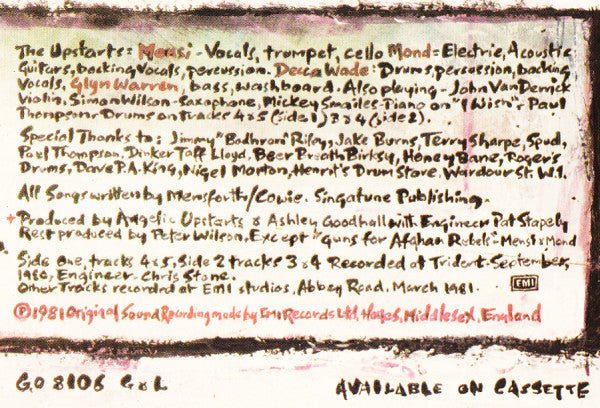 The Upstarts: Mensi - Vocals, trumpet, cello Mond = Electric, Acoustic
Guitars, backing vocals, percussion. Decca Wade: Drums, percussion, backing
Vocals, Glyn Warren, bass, washboard. Also playing - John Van Derrick
Violin, Simon Wilson - Saxophone, Mickey Smailes - Piano on "I Wish" - Paul
Thompson - Drums on tracks 4 & 5 (side 1) 3 & 4 (side 2).
Special Thanks to: Jimmy "Bodhroni" Riley, Jake Burns, Terry Sharpe, Spud,
Paul Thompson, Dinker Taff Lloyd, Beer Breath Birksy, Honey Bane, Rogers
Drums, Dave P.A. King, Nigel Morton, Henrit's Drum Store, Wardour St. W.1.
All Songs written by Mensforth/Cowie. Singatune Publishing.
+ Produced by Angelic Upstarts & Ashley Goodhall with Engineer Pat Stapely
Rest produced by Peter Wilson, Except "Guns for Afghan Rebels - Mensi & Mond
Side One, tracks 4 & 5, Side 2 tracks 3 & 4 Recorded at Trident - September,
1980, Engineer - Chris Stone.
Other Tracks recorded at EMI studios, Abbey Road, March 1981.
EMI
℗ 1981 Original Sound Recording made by EMI Records Ltd, Hayes, Middlesex, England
GO 8106 G & L
AVAILABLE ON CASSETTE